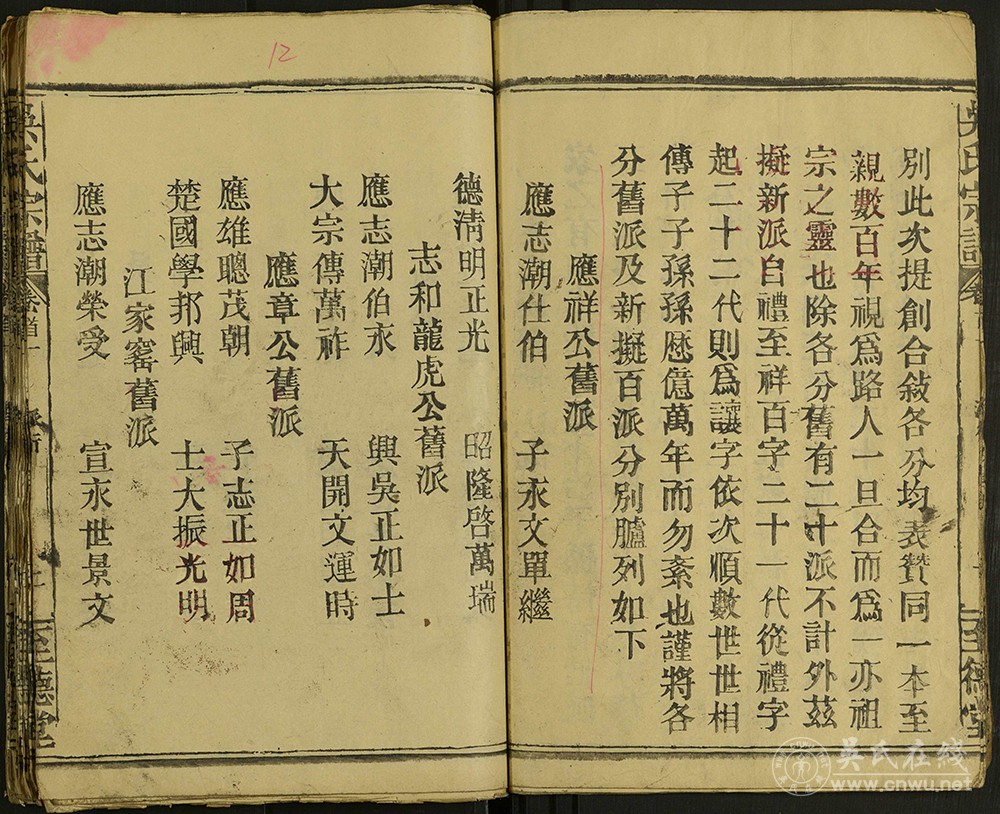 別此次提創合敍各分均表贊同一本至
親數百年視爲路人一旦合而爲一亦祖
宗之靈也除各分舊有二十派不計外茲
擬新派自禮至祥百字二十一代從禮字
起二十二代則爲讓字依次順數世世相
傳子子孫孫歷億萬年而勿紊也謹將各
分舊派及新擬百派分別臚列如下
應祥公舊派
應志潮仕伯 子永文單繼
德淸明正光 昭隆啓萬瑞
志和龍虎公舊派
應志潮伯永 興吳正如士
大宗傳萬祚 天開文運時
應章公舊派
應雄聰茂朝 子志正如周
楚國學邦興 士大振光明
江家窰舊派
應志潮榮受 宣永世景文
吳氏宗譜
至德堂
吳氏宗譜 卷首
至德堂
12
吳氏在线
www.cnwu.net